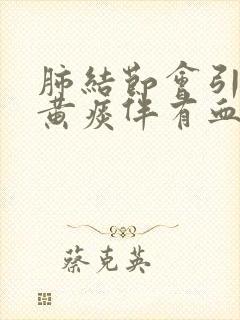 肺結節會引
黃痰伴有血
蔡克英